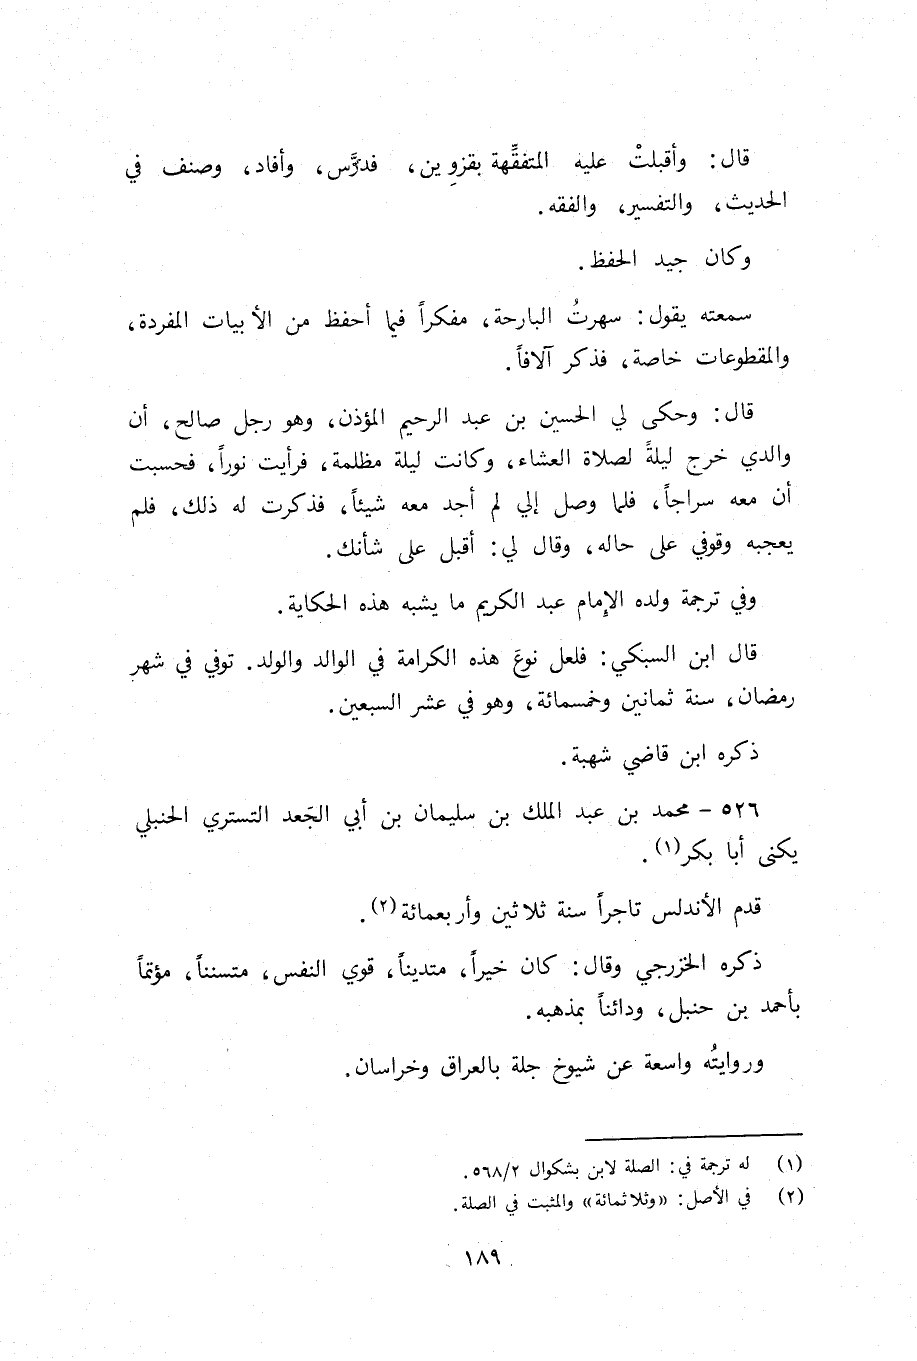 قال: وأقبلتْ عليه المتفقِّهة بقزوين، فدرَّس، وأفاد، وصنف في
الحديث، والتفسير، والفقه.
وكان جيد الحفظ.
سمعته يقول: سهرتُ البارحة، مفكراً فيما أحفظ من الأبيات المفردة،
والمقطوعات خاصة، فذكر آلافاً.
قال: وحكى لي الحسين بن عبد الرحيم المؤذن، وهو رجل صالح، أن
والدي خرج ليلةً لصلاة العشاء، وكانت ليلة مظلمة، فرأيت نوراً، فحسبت
أن معه سراجاً، فلما وصل إلي لم أجد معه شيئاً، فذكرت له ذلك، فلم
يعجبه وقوفي على حاله، وقال لي: أقبل على شأنك.
وفي ترجمة ولده الإمام عبد الكريم ما يشبه هذه الحكاية.
قال ابن السبكي: فلعل نوعَ هذه الكرامة في الوالد والولد. توفي في شهر
رمضان، سنة ثمانين وخمسمائة، وهو في عشر السبعين.
ذكره ابن قاضي شهبة.
٥٢٦ - محمد بن عبد الملك بن سليمان بن أبي الجَعد التستري الحنبلي
يكنى أبا بكر(١).
قدم الأندلس تاجراً سنة ثلاثين وأربعمائة(٢).
ذكره الخزرجي وقال: كان خيراً، متديناً، قوي النفس، متسنناً، مؤتماً
بأحمد بن حنبل، ودائناً بمذهبه.
وروايتُه واسعة عن شيوخ جلة بالعراق وخراسان.
(١) له ترجمة في: الصلة لابن بشكوال ٥٦٨/٢.
(٢) في الأصل: «وثلاثمائة» والمثبت في الصلة.
١٨٩